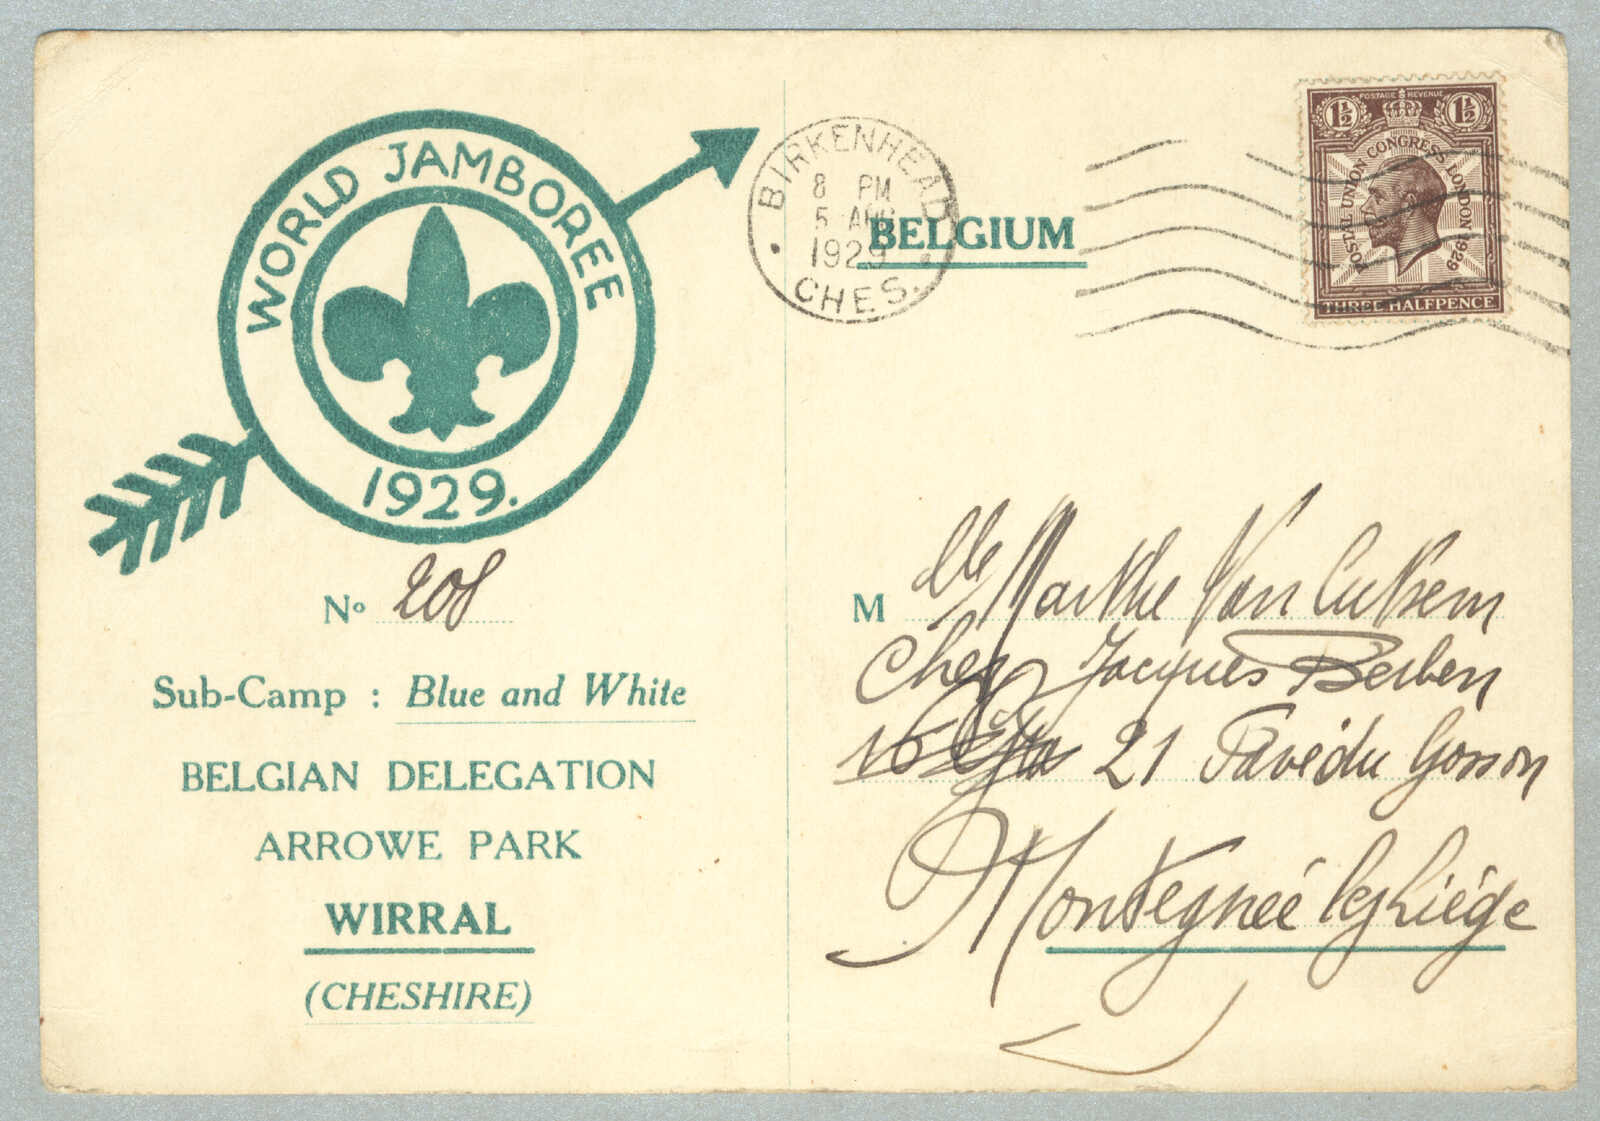 WORLD JAMBOREE
1929.
Nº 208
Sub-Camp : Blue and White
BELGIAN DELEGATION
ARROWE PARK
WIRRAL
(CHESHIRE)
BIRKENHEAD
8 PM
5 AUG
1929
CHES.
BELGIUM
1½ POSTAGE REVENUE 1½
POSTAL UNION CONGRESS LONDON 1929
THREE HALFPENCE
M lle Marthe Van Cutsem
Chez Jacques Berben
16 21 Pavé du Gosson
Montegnée lez Liége